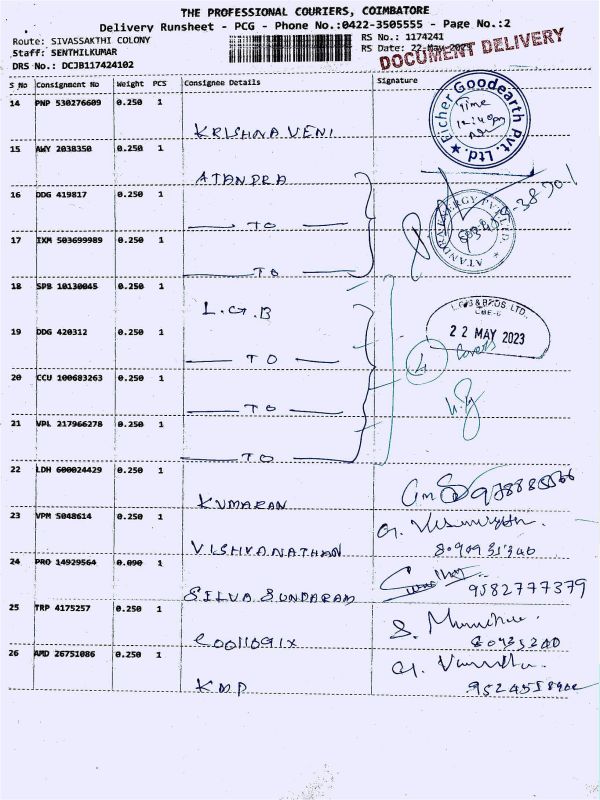 THE PROFESSIONAL COURIERS, COIMBATORE
Delivery Runsheet - PCG - Phone No.:0422-3505555 - Page No.:2
Route: SIVASSAKTHI COLONY RS No.: 1174241
Staff: SENTHILKUMAR RS Date: 22-May-2023
DRS No.: DCJB117424102 DOCUMENT DELIVERY
S No Consignment No Weight PCS Consignee Details Signature
14 PNP 530276609 0.250 1 KRISHNAVENI
Eicher Goodearth Pvt. Ltd.
Time
15 AWY 2038350 0.250 1 ATANDRA
16 DDG 419817 0.250 1 TO
ATANDRA ENERGY PVT LTD.
17 IXM 503699989 0.250 1 TO
18 SPB 10130045 0.250 1 L.G.B
L.G.B & BROS. LTD.
CBE-6
22 MAY 2023
19 DDG 420312 0.250 1 TO
4 Covers
20 CCU 100683263 0.250 1 TO
21 VPL 217966278 0.250 1 TO
22 LDH 600024429 0.250 1 KUMARAN
23 VPM 5048614 0.250 1 VISHVANATHAN
24 PRO 14929564 0.090 1 SILVA SUNDARAM 9582777379
25 TRP 4175257 0.250 1
26 AMD 26751086 0.250 1 KMP